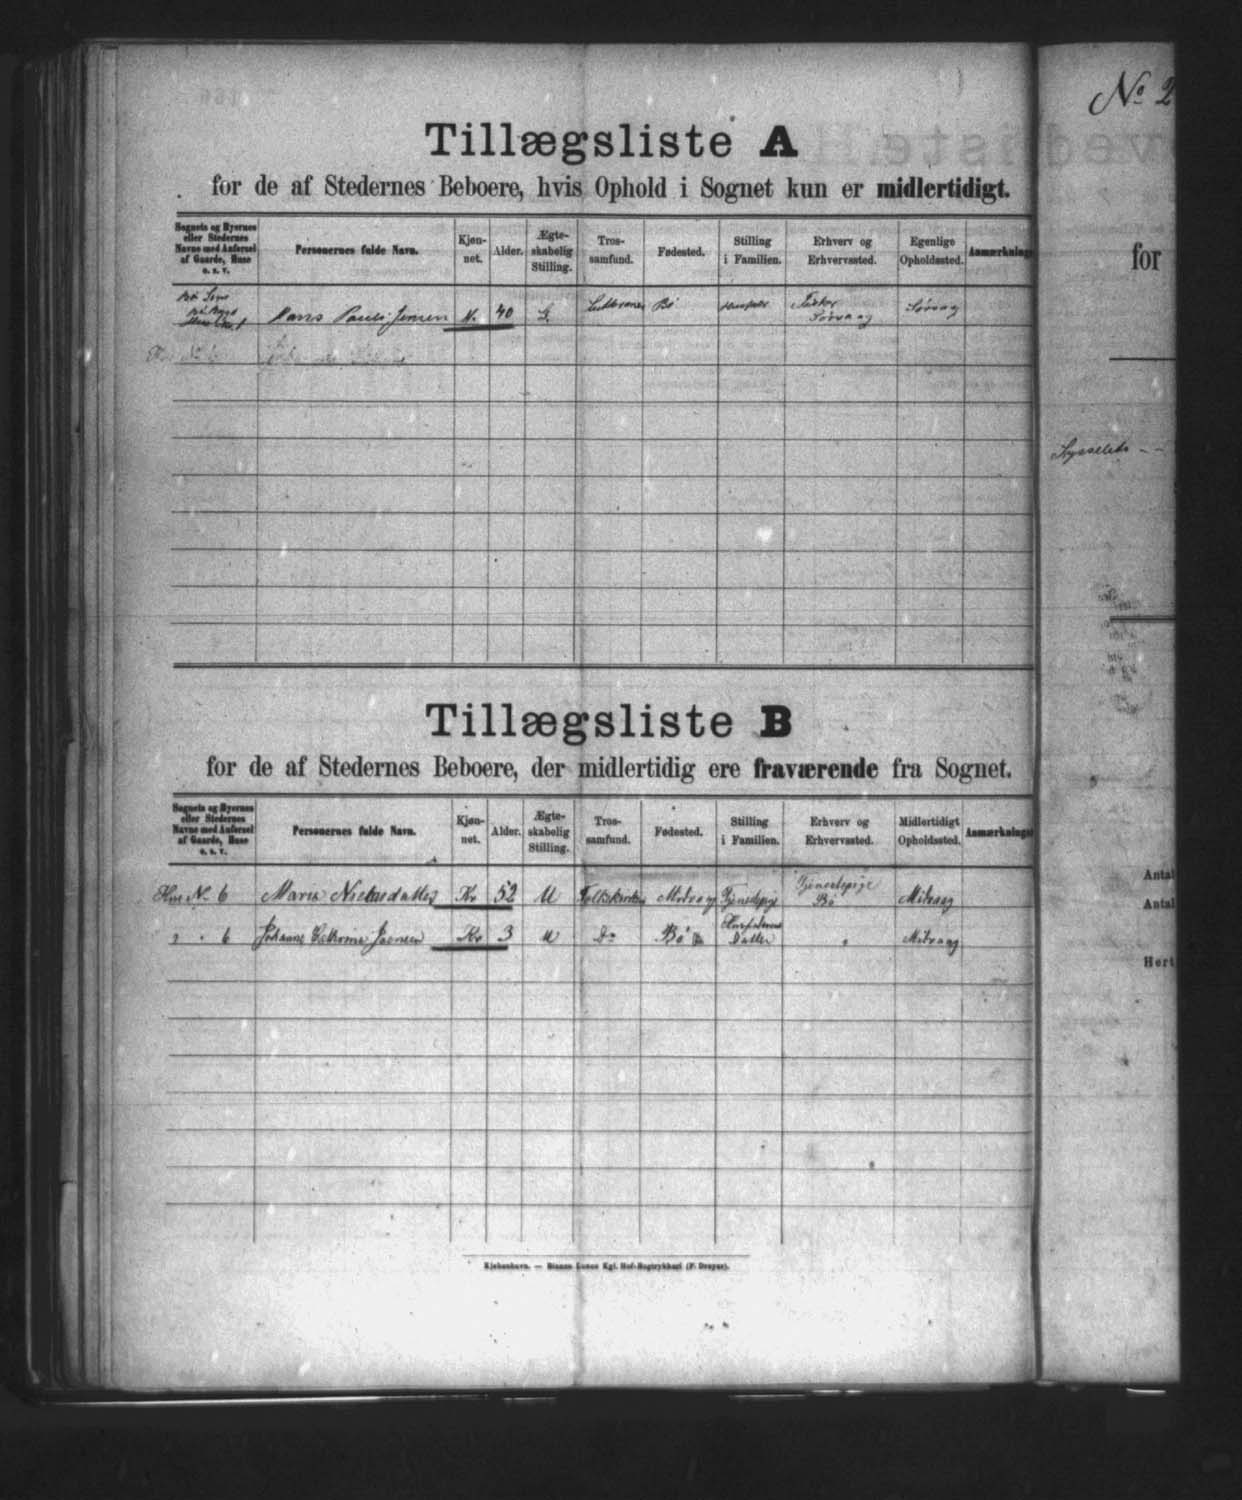 Tillægsliste A
for de af Stedernes Beboere, hvis Ophold i Sognet kun er midlertidigt.
Sognets og Byernes eller Stedernes Navne med Anførsel af Gaarde, Huse o. s. v.
Personernes fulde Navn.
Kjøn-
net.
Alder.
Ægte-
skabelig
Stilling.
Tros-
samfund.
Fødested.
Stilling
i Familien.
Erhverv og
Erhvervssted.
Egenlige
Opholdssted.
Anmærkninger
Hans Pauli Jensen M. 40 G. Bø Fisker Sørvaag Sørvaag
Tillægsliste B
for de af Stedernes Beboere, der midlertidig ere fraværende fra Sognet.
Sognets og Byernes
eller Stedernes
Navne med Anførsel
af Gaarde, Huse
o. s. v.
Personernes fulde Navn.
Kjøn-
net.
Alder.
Ægte-
skabelig
Stilling.
Tros-
samfund.
Fødested.
Stilling
i Familien.
Erhverv og
Erhvervssted.
Midlertidigt
Opholdssted.
Anmærkninger
Hus No. 6 Maria Nielsdatter Kv 52 U Folkekirken Midvaag Tjenestepige Tjenestepige Bø Midvaag
" " 6 Johanne Jensen Kv 3 U Do Bø Husfaderens Datter " Midvaag
Kjøbenhavn. — Bianco Lunos Kgl. Hof-Bogtrykkeri (F. Dreyer).
No 2
for
Sysselets - -
Antal
Antal
Hert